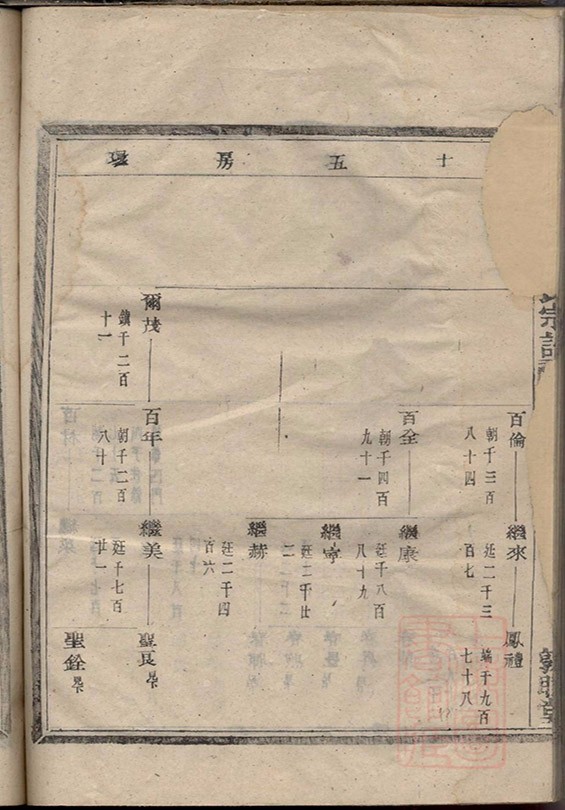 十五房
宗譜
百倫
朝千三百
八十四
繼來
廷二千三
百七
鳳禮
端千九百
七十八
百全
朝千四百
九十一
繼康
廷千八百
八十九
繼寧
廷二千廿
二
繼赫
廷二千四
百六
爾茂
鎮千二百
十一
百年
朝千二百
八十
繼美
廷千七百
廿一
聖長
聖銓